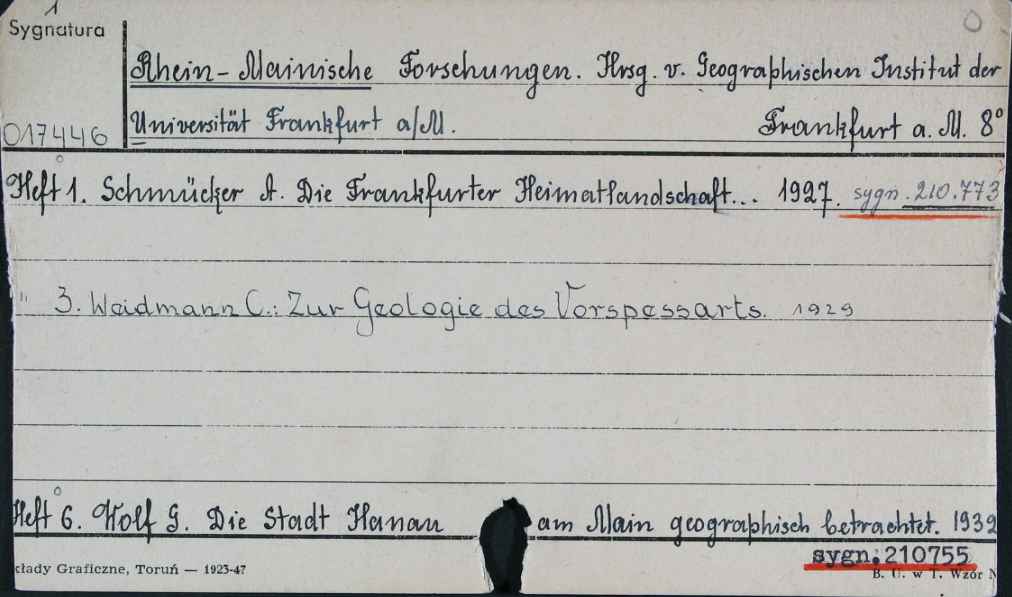 Sygnatura
1
Rhein-Mainische Forschungen. Hrsg. v. Geographischen Institut der
017446
Universität Frankfurt a/M. Frankfurt a. M. 8°
Heft 1. Schmücker A. Die Frankfurter Heimatlandschaft... 1927. sygn. 210.773
" 3. Weidmann C.: Zur Geologie des Vorspessarts. 1929
Heft 6. Wolf G. Die Stadt Hanau am Main geographisch betrachtet. 1932
sygn. 210755
kłady Graficzne, Toruń — 1923-47 B. U. w T. Wzór N